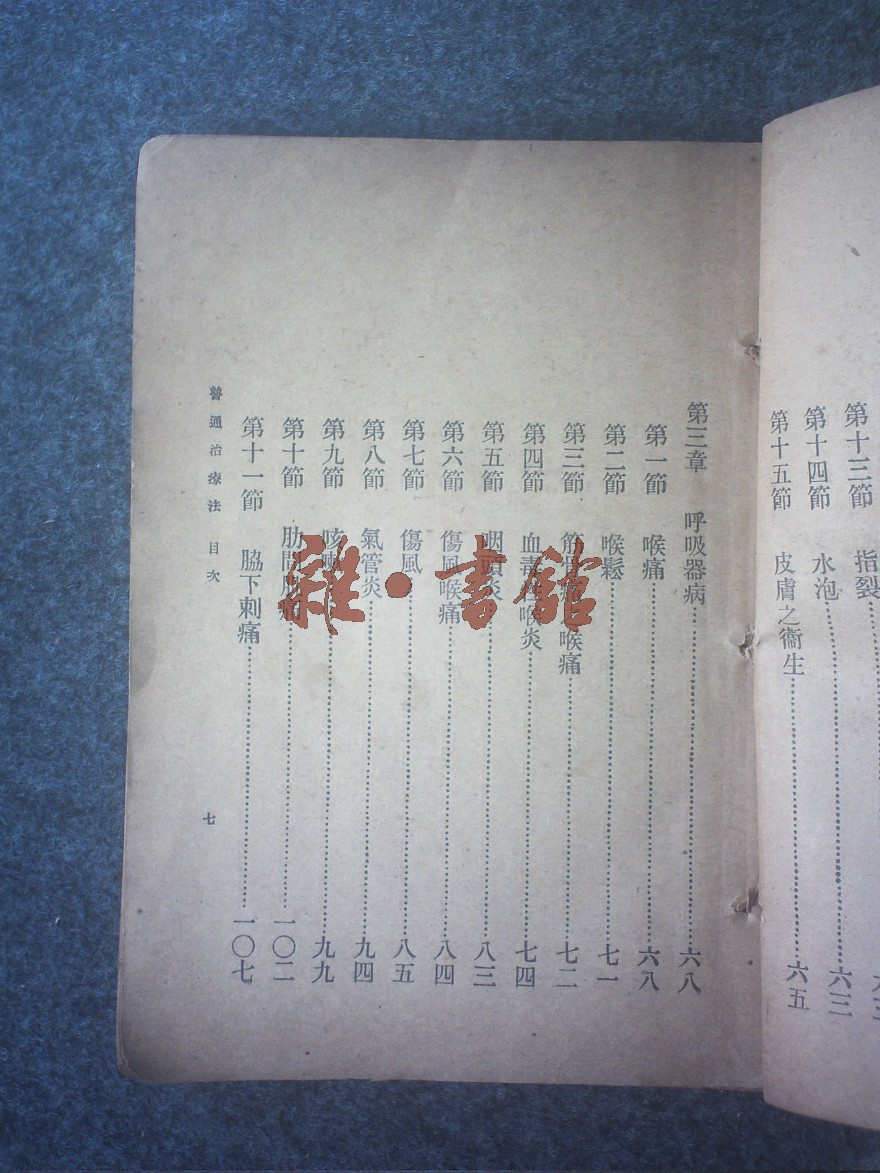 第十三節　指裂
第十四節　水泡……六三
第十五節　皮膚之衞生……六五
第三章　呼吸器病……六八
第一節　喉痛……六八
第二節　喉鬆……七一
第三節　喉痛……七二
第四節　血毒性喉炎……七四
第五節　咽頭炎……八三
第六節　傷風喉痛……八四
第七節　傷風……八五
第八節　氣管炎……九四
第九節　咳嗽……九九
第十節　肋間……一〇二
第十一節　脇下刺痛……一〇七
普通治療法　目次
七
雜·書館